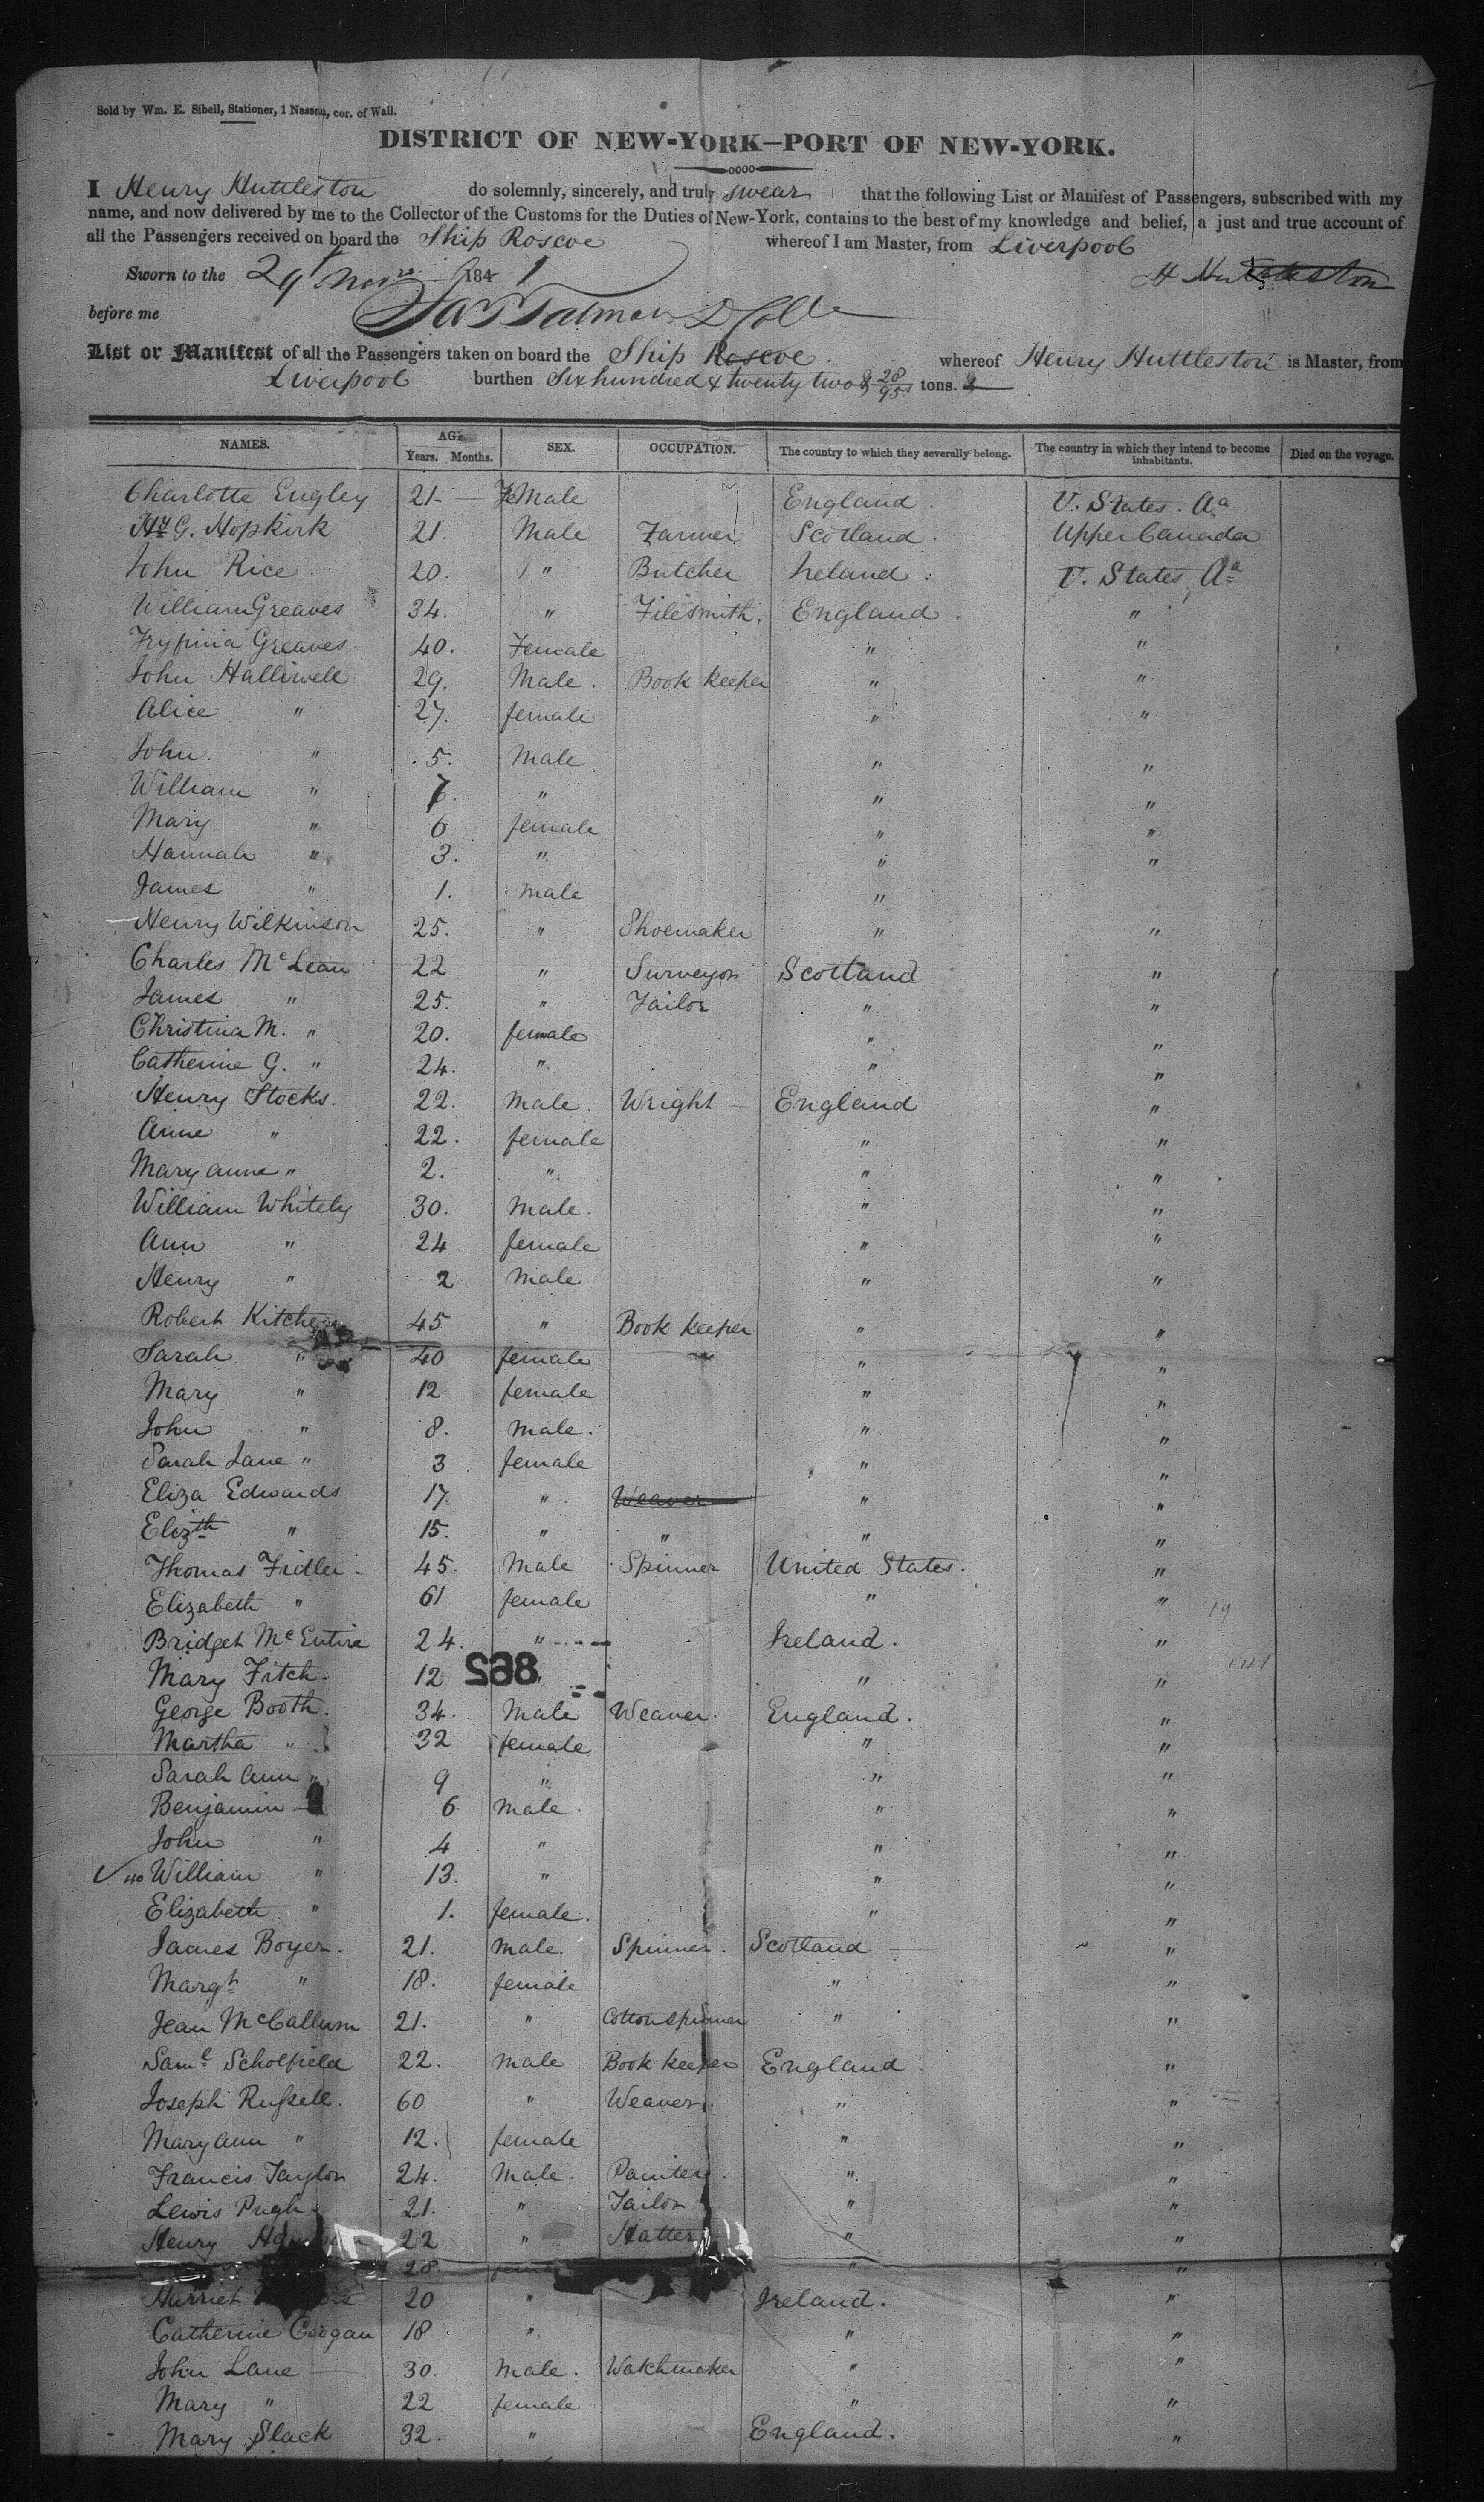 Sold by Wm. E. Sibell, Stationer, 1 Nassau, cor. of Wall.
DISTRICT OF NEW-YORK—PORT OF NEW-YORK.
I Henry Huttleston do solemnly, sincerely, and truly swear that the following List or Manifest of Passengers, subscribed with my
name, and now delivered by me to the Collector of the Customs for the Duties of New-York, contains to the best of my knowledge and belief, a just and true account of
all the Passengers received on board the Ship Roscoe whereof I am Master, from Liverpool
Sworn to the 29 Novr 1841 H Huttleston
before me D Coll
List or Manifest of all the Passengers taken on board the Ship Roscoe. whereof Henry Huttleston is Master, from
Liverpool burthen Six hundred & twenty two & 28/95 tons.
NAMES. AGE Years. Months. SEX. OCCUPATION. The country to which they severally belong. The country in which they intend to become inhabitants. Died on the voyage.
Charlotte Engley 21 — FeMale England. U. States. Aa
Hy G. Hopkirk 21. Male Farmer Scotland. Upper Canada
John Rice. 20. " Butcher Ireland. U. States Aa
William Greaves 34. " Filesmith. England. "
Greaves. 40. Female " "
John Halliwell 29. Male. Book keeper " "
Alice " 27. female " "
John " 5. Male " "
William " 7. " " "
Mary " 6 female " "
Hannah " 3. " " "
James " 1. male "
Henry Wilkinson 25. " Shoemaker " "
Charles McLean 22 " Surveyor Scotland "
James " 25. " Tailor " "
Christina M. " 20. female " "
Catherine G. " 24. " " "
Henry Stocks. 22. male. Wright — England "
Anne " 22. female " "
Mary anne " 2. " " "
William Whitely 30. Male. " "
Ann " 24 female " "
Henry " 2 Male " "
Robert Kitchen 45 " Book keeper " "
Sarah " 40 female " "
Mary " 12 female " "
John " 8. Male. " "
Sarah Jane " 3 female " "
Eliza Edwards 17. " Weaver " "
Elizth " 15. " " " "
Thomas Fidler - 45. Male Spinner United States. "
Elizabeth " 61 female " " 19
Bridget McEntire 24. " Ireland. "
Mary Fitch. 12 " " "
862
George Booth. 34. Male Weaver. England. "
Martha " 32 female " "
Sarah Ann " 9 " " "
Benjamin 6 Male. " "
John " 4 " " "
40 William " 13. " " "
Elizabeth " 1. female. " "
James Boyer. 21. Male. Spinner. Scotland "
Margt " 18. female " "
Jean McCallum 21. " Cotton spinner " "
Saml Scholfield 22. male Book keeper England. "
Joseph Russell. 60 " Weaver. " "
Mary Ann " 12. female " "
Francis Taylor 24. Male. Painter. " "
Lewis Pugh. 21. " Tailor " "
Henry 22 " Hatter " "
28. female " "
Harriet 20 " Ireland. "
Catherine Coogan 18 " " "
John Lane 30. Male. Watchmaker " "
Mary " 22 female " "
Mary Slack 32. " England. "